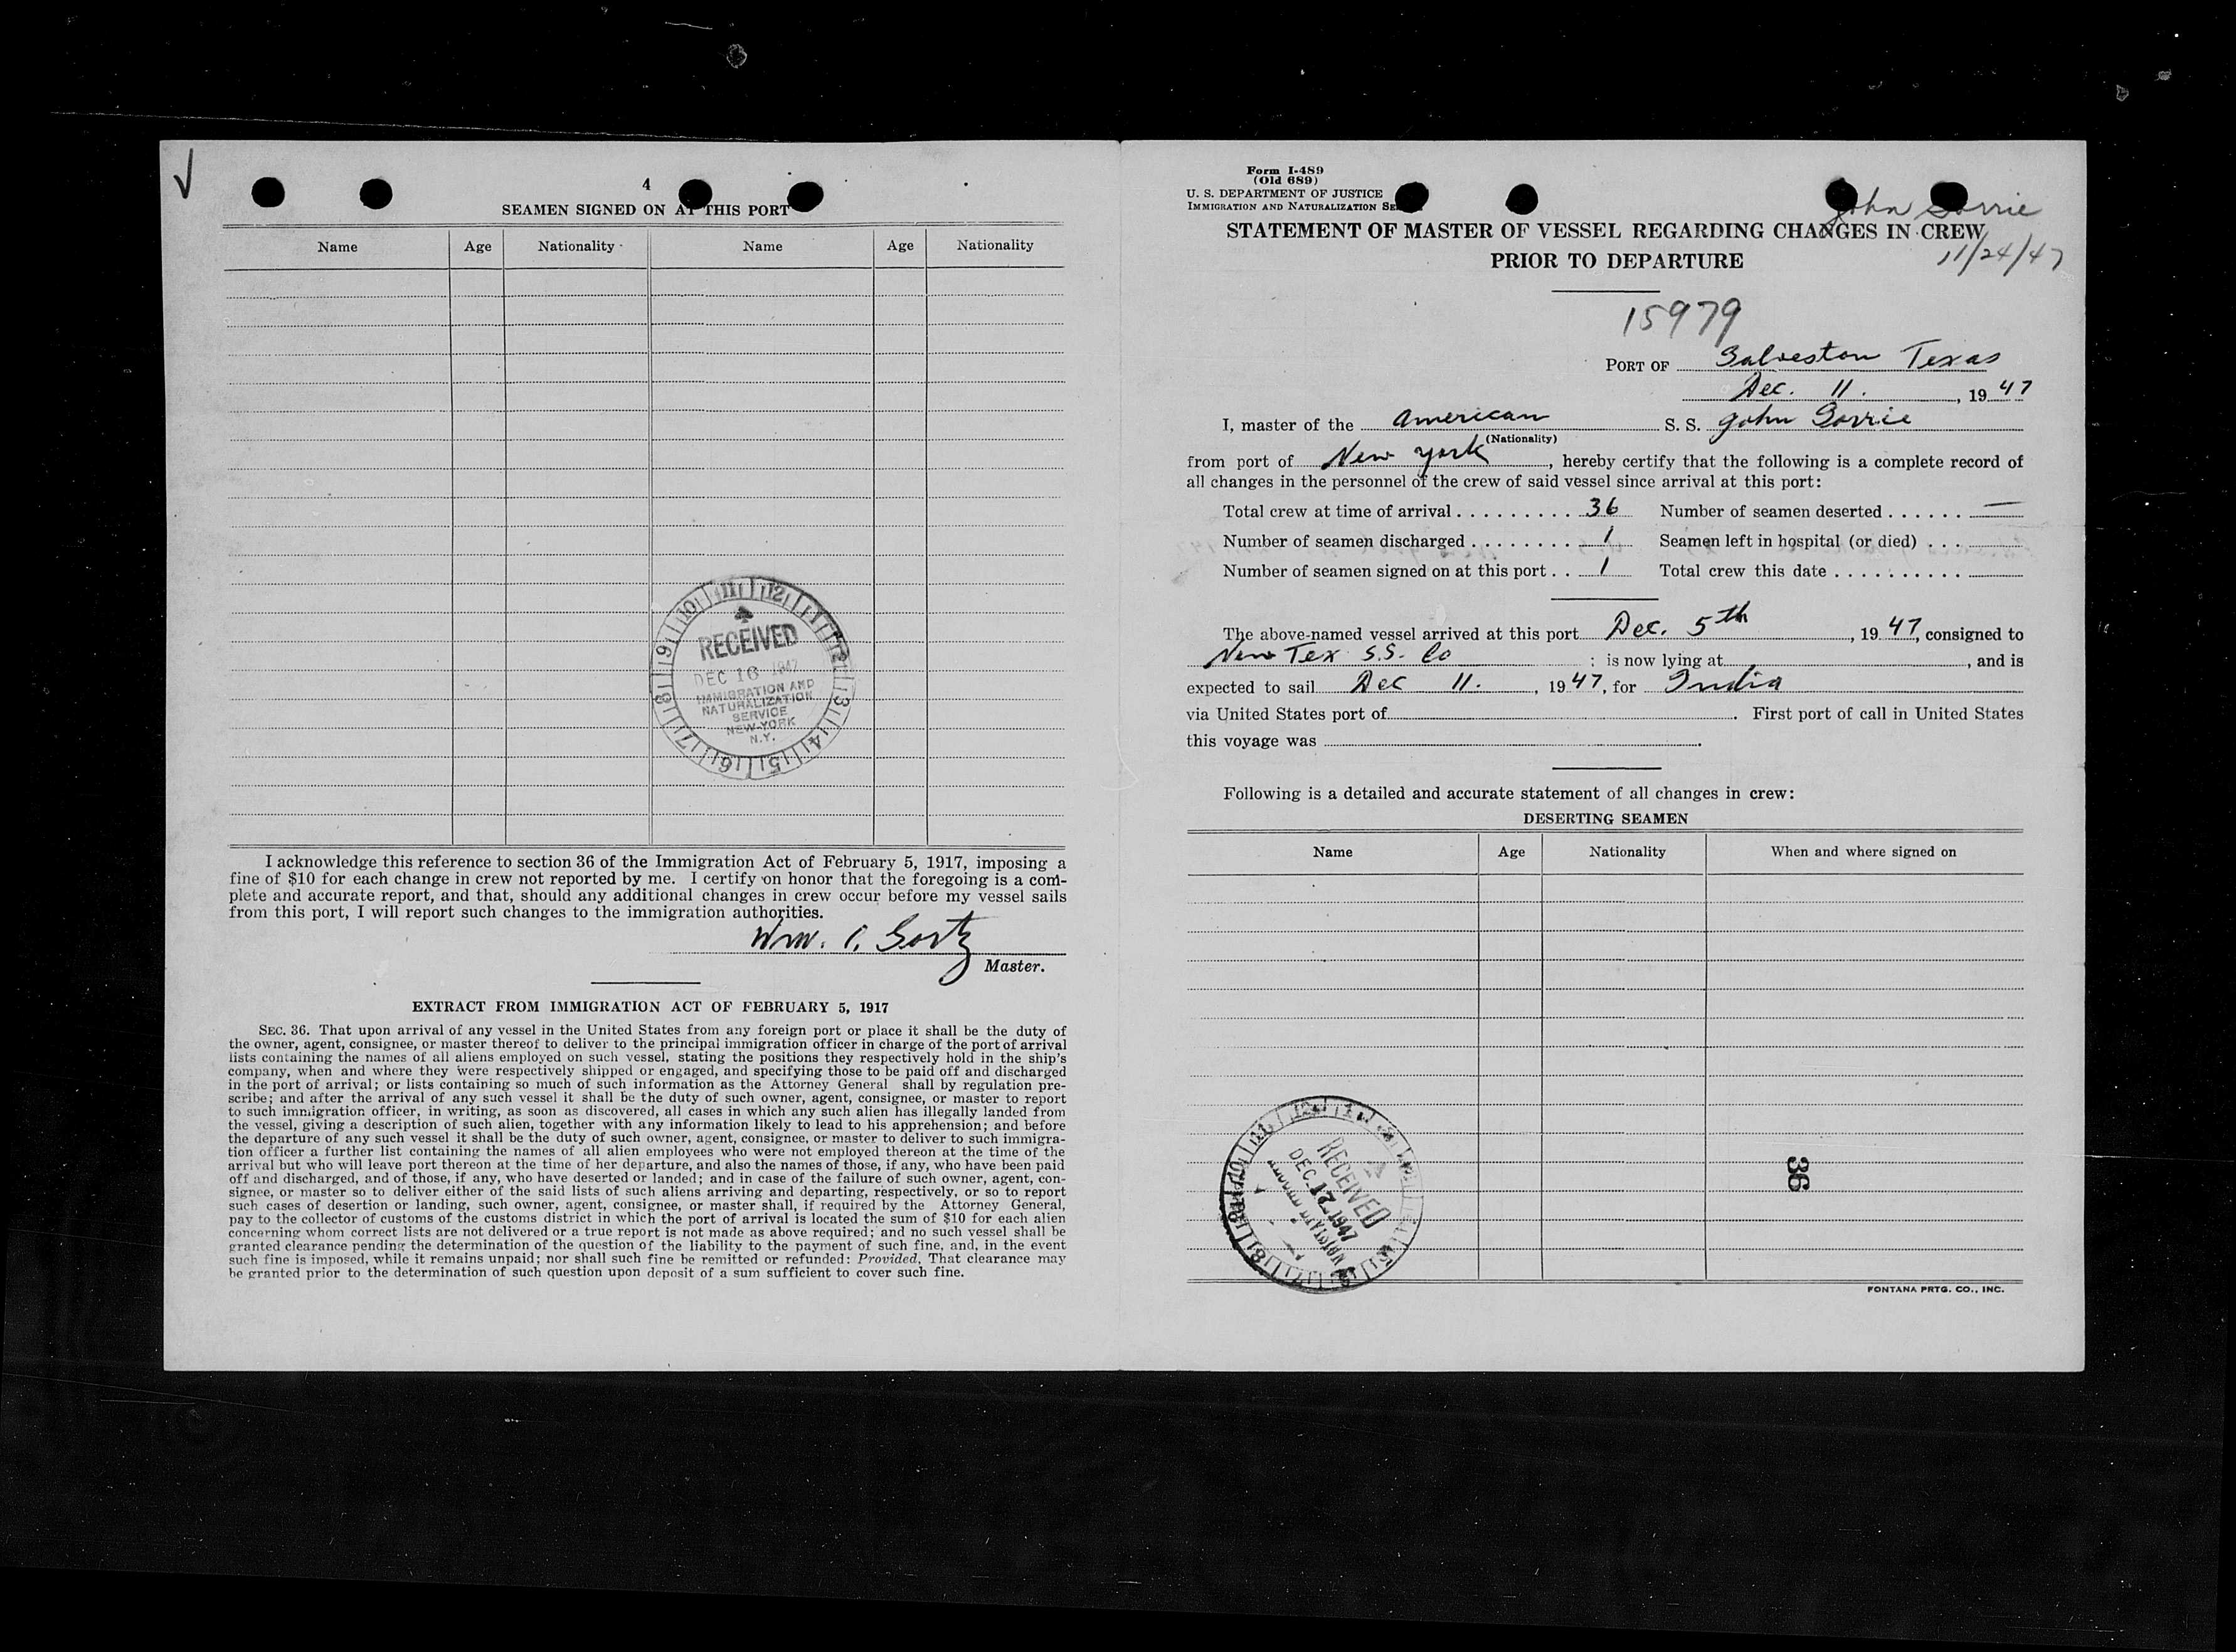 ✓
4
SEAMEN SIGNED ON AT THIS PORT
Name Age Nationality Name Age Nationality
RECEIVED
DEC 16 1947
IMMIGRATION AND
NATURALIZATION
SERVICE
NEW YORK
N.Y.
I acknowledge this reference to section 36 of the Immigration Act of February 5, 1917, imposing a
fine of $10 for each change in crew not reported by me. I certify on honor that the foregoing is a com-
plete and accurate report, and that, should any additional changes in crew occur before my vessel sails
from this port, I will report such changes to the immigration authorities.
Wm.
Master.
EXTRACT FROM IMMIGRATION ACT OF FEBRUARY 5, 1917
SEC. 36. That upon arrival of any vessel in the United States from any foreign port or place it shall be the duty of
the owner, agent, consignee, or master thereof to deliver to the principal immigration officer in charge of the port of arrival
lists containing the names of all aliens employed on such vessel, stating the positions they respectively hold in the ship's
company, when and where they were respectively shipped or engaged, and specifying those to be paid off and discharged
in the port of arrival; or lists containing so much of such information as the Attorney General shall by regulation pre-
scribe; and after the arrival of any such vessel it shall be the duty of such owner, agent, consignee, or master to report
to such immigration officer, in writing, as soon as discovered, all cases in which any such alien has illegally landed from
the vessel, giving a description of such alien, together with any information likely to lead to his apprehension; and before
the departure of any such vessel it shall be the duty of such owner, agent, consignee, or master to deliver to such immigra-
tion officer a further list containing the names of all alien employees who were not employed thereon at the time of the
arrival but who will leave port thereon at the time of her departure, and also the names of those, if any, who have been paid
off and discharged, and of those, if any, who have deserted or landed; and in case of the failure of such owner, agent, con-
signee, or master so to deliver either of the said lists of such aliens arriving and departing, respectively, or so to report
such cases of desertion or landing, such owner, agent, consignee, or master shall, if required by the Attorney General,
pay to the collector of customs of the customs district in which the port of arrival is located the sum of $10 for each alien
concerning whom correct lists are not delivered or a true report is not made as above required; and no such vessel shall be
granted clearance pending the determination of the question of the liability to the payment of such fine, and, in the event
such fine is imposed, while it remains unpaid; nor shall such fine be remitted or refunded: Provided, That clearance may
be granted prior to the determination of such question upon deposit of a sum sufficient to cover such fine.
Form I-489
(Old 689)
U. S. DEPARTMENT OF JUSTICE
IMMIGRATION AND NATURALIZATION SE
John Gorrie
STATEMENT OF MASTER OF VESSEL REGARDING CHANGES IN CREW
PRIOR TO DEPARTURE
11/24/47
15979
PORT OF Galveston Texas
Dec. 11. , 19 47
I, master of the American S. S. John Gorrie
(Nationality)
from port of New York , hereby certify that the following is a complete record of
all changes in the personnel of the crew of said vessel since arrival at this port:
Total crew at time of arrival . . . . . . . . . . 36 Number of seamen deserted . . . . . . —
Number of seamen discharged . . . . . . . . 1 Seamen left in hospital (or died) . . .
Number of seamen signed on at this port . . 1 Total crew this date . . . . . . . . . .
The above-named vessel arrived at this port Dec. 5th , 19 47, consigned to
New Tex S.S. Co ; is now lying at , and is
expected to sail Dec 11. , 19 47, for India
via United States port of . First port of call in United States
this voyage was .
Following is a detailed and accurate statement of all changes in crew:
DESERTING SEAMEN
Name Age Nationality When and where signed on
RECEIVED
DEC 17 1947
DIVISION
36
FONTANA PRTG. CO., INC.